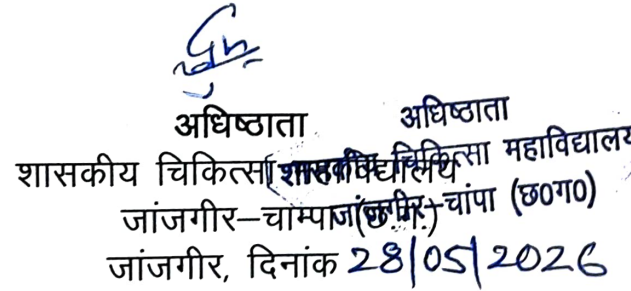 अधिष्ठाता
शासकीय चिकित्सा महाविद्यालय
जांजगीर–चाम्पा (छ.ग.)
जांजगीर, दिनांक 28/05/2026
अधिष्ठाता
शासकीय चिकित्सा महाविद्यालय
जांजगीर–चांपा (छ0ग0)